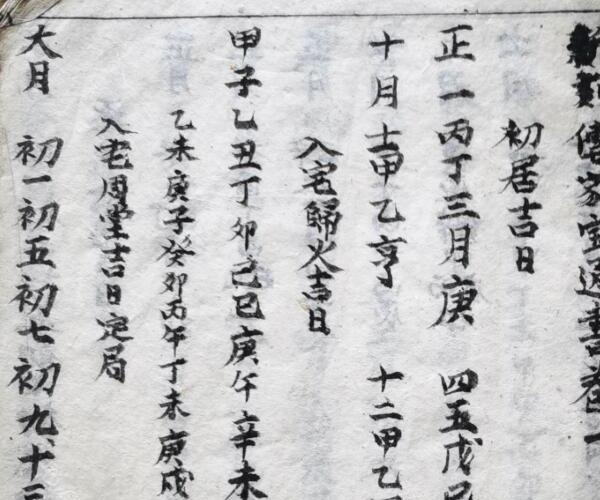 傳家宝通書卷一
初居吉日
正一丙丁三月庚 四五戊己
十月士甲乙亨 十二甲乙
入宅歸火吉日
甲子乙丑丁卯己巳庚午辛未
乙未庚子癸卯丙午丁未庚戌
入宅周堂吉日定局
大月 初一初五初七初九、十三